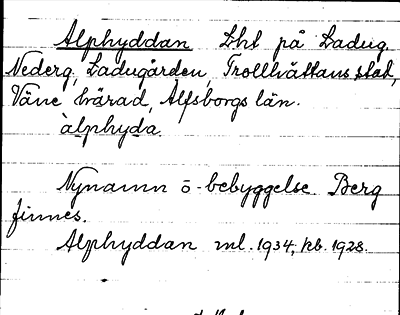 Alphyddan Lht på Ladug.
Nederg, Ladugården, Trollhättans stad,
Väne härad, Älfsborgs län.
àlphyda.
Nynamn ö. bebyggelse Berg
finnes.
Alphyddan ml. 1934, kb. 1928.